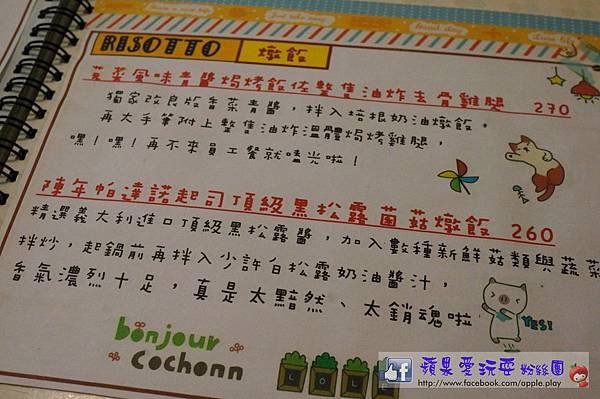 RISOTTO 燉飯
芫荽風味青醬焗烤飯佐整隻油炸去骨雞腿 270
獨家改良版香菜青醬，拌入培根奶油燉飯。
再大手筆附上整隻油炸溫體焗烤雞腿，
嘿！嘿！再不來員工餐就嗑光啦！
陳年帕達諾起司頂級黑松露菌菇燉飯 260
精選義大利進口頂級黑松露醬，加入數種新鮮菇類與蔬菜
拌炒，起鍋前再拌入少許白松露奶油醬汁，
香氣濃烈十足，真是太黯然、太銷魂啦
YES!
bonjour
cochonn
LOL
蘋果愛玩耍 粉絲團
http://www.facebook.com/apple.play